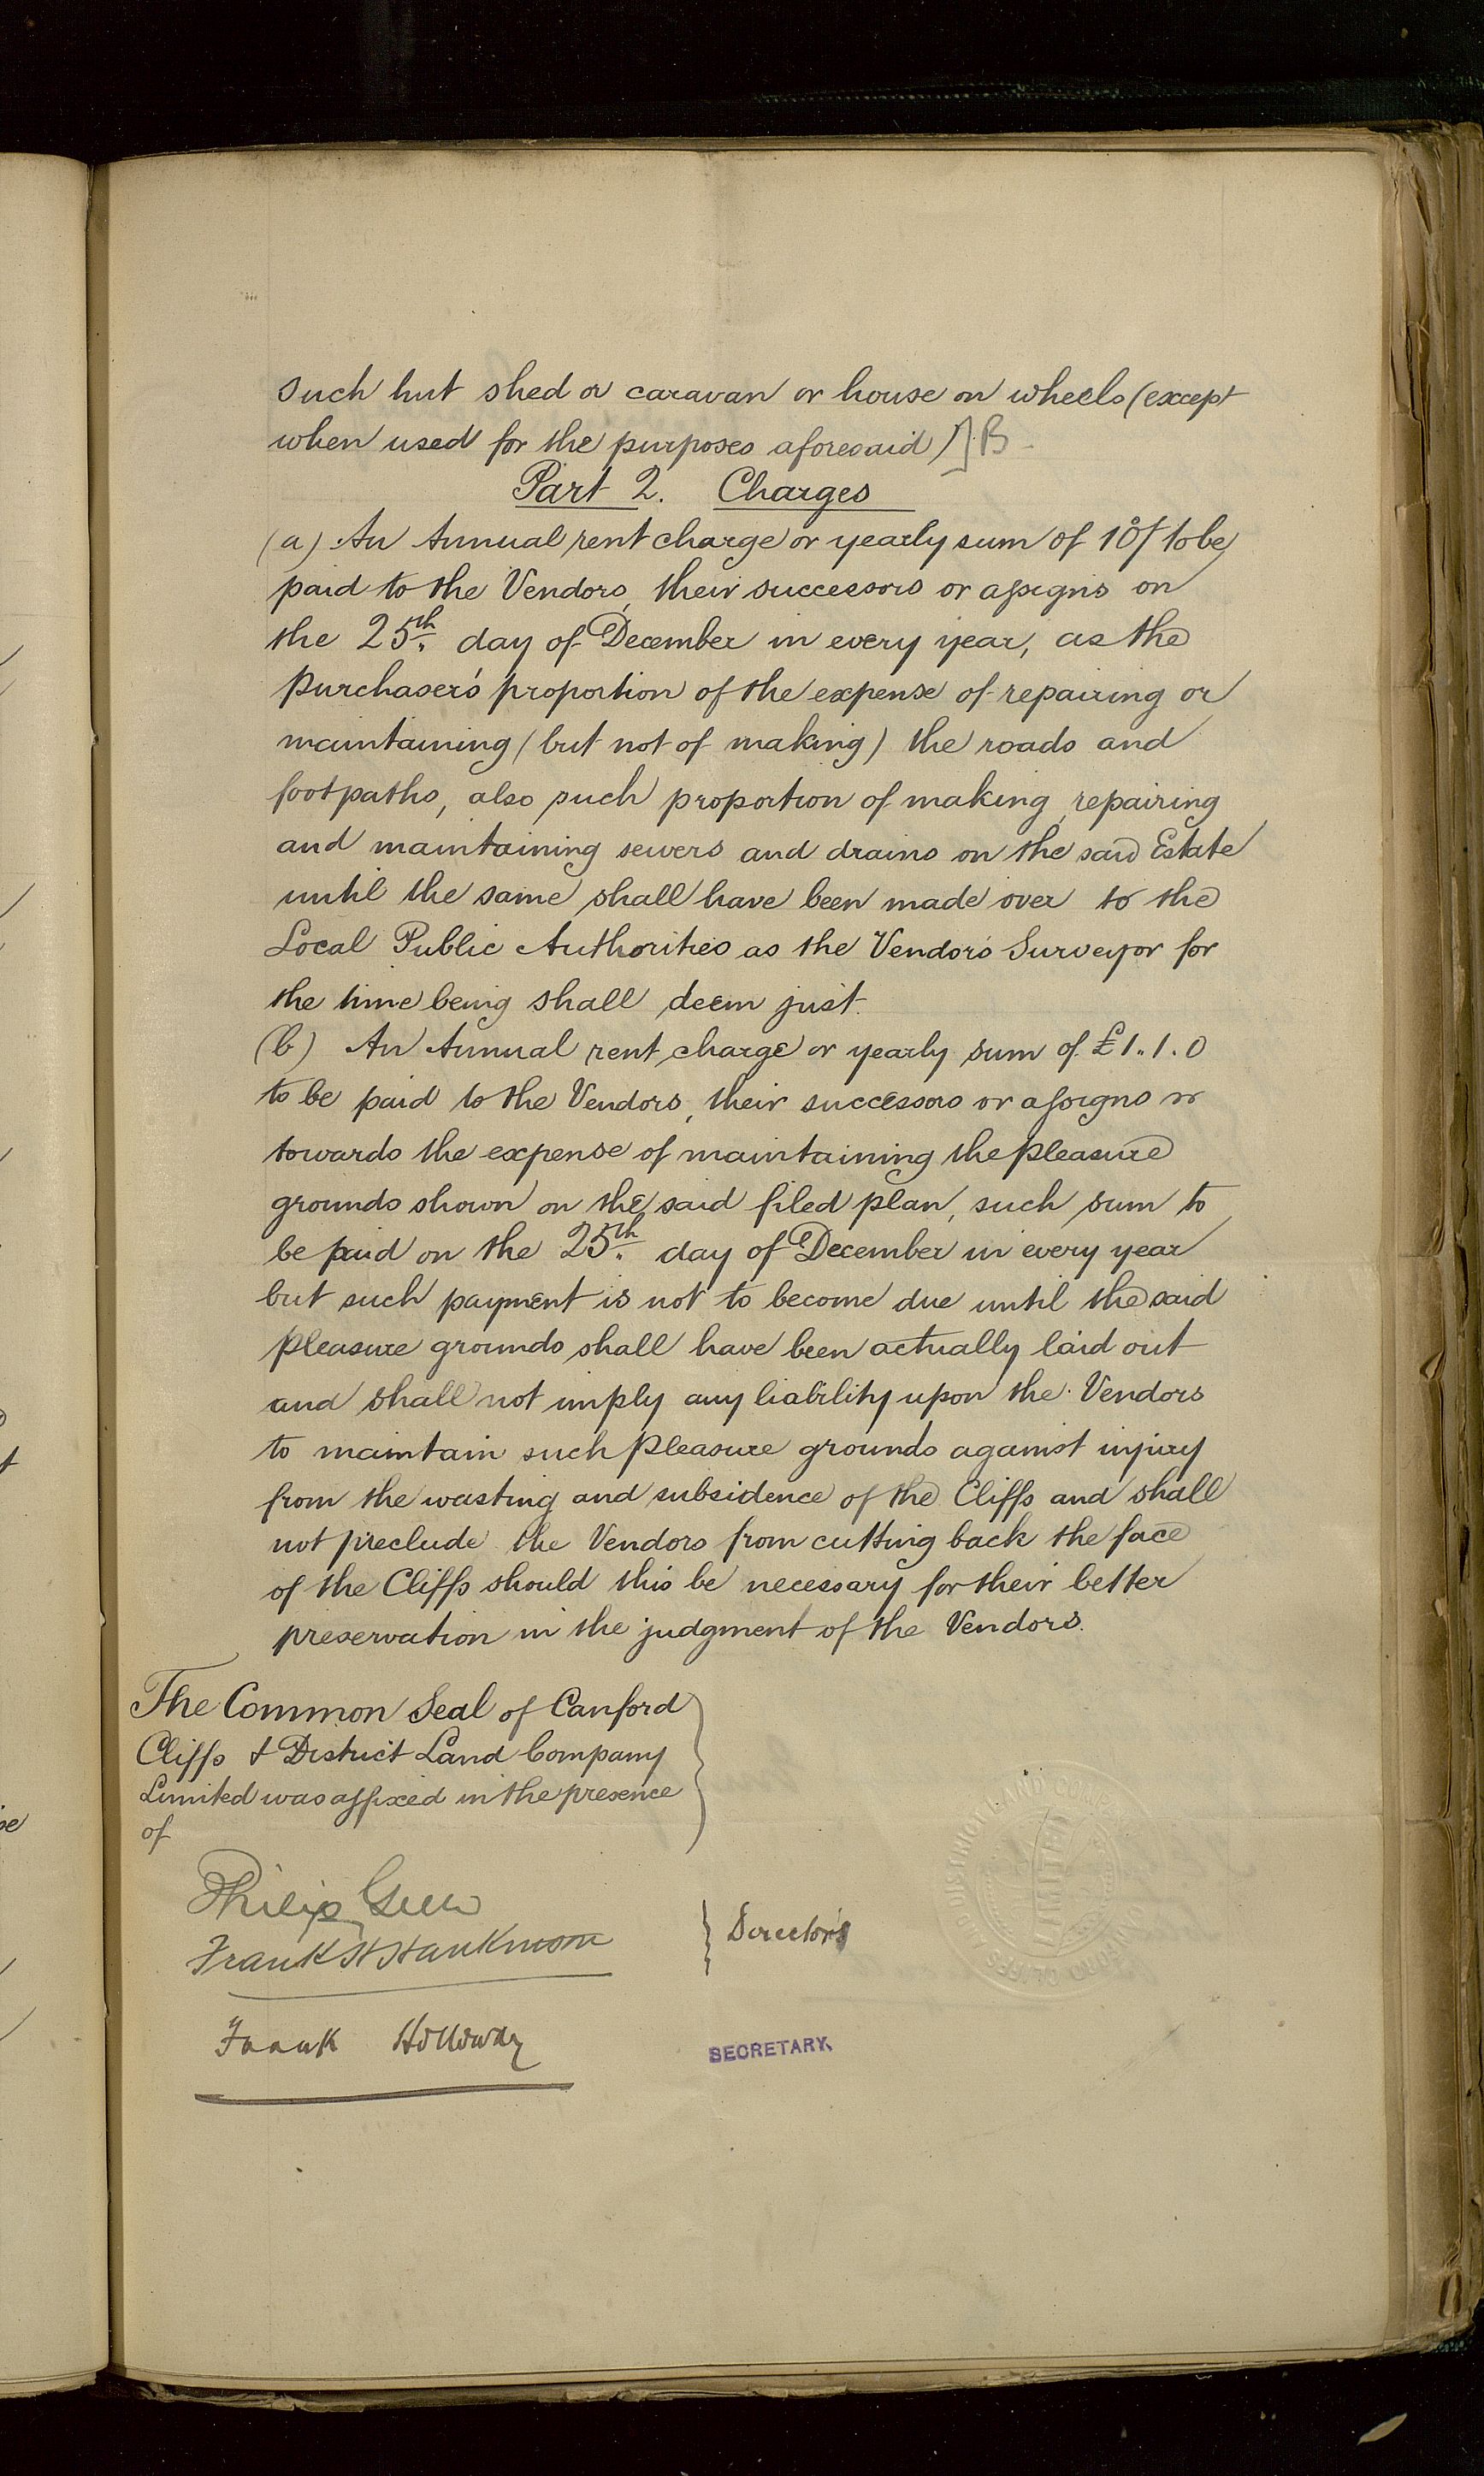 such hut shed or caravan or house on wheels (except
when used for the purposes aforesaid)] B
Part 2. Charges
(a) An Annual rent charge or yearly sum of 10/ to be
paid to the Vendors, their successors or assigns on
the 25th day of December in every year, as the
purchaser's proportion of the expense of repairing or
maintaining (but not of making) the roads and
footpaths, also such proportion of making, repairing
and maintaining sewers and drains on the said Estate
until the same shall have been made over to the
Local Public Authorities as the Vendors Surveyor for
the time being shall deem just.
(b) An Annual rent charge or yearly sum of £1.1.0
to be paid to the Vendors, their successors or assigns
towards the expense of maintaining the pleasure
grounds shown on the said filed plan, such sum to
be paid on the 25th day of December in every year
but such payment is not to become due until the said
pleasure grounds shall have been actually laid out
and shall not imply any liability upon the Vendors
to maintain such pleasure grounds against injury
from the wasting and subsidence of the Cliffs and shall
not preclude the Vendors from cutting back the face
of the Cliffs should this be necessary for their better
preservation in the judgment of the Vendors.
The Common Seal of Canford
Cliffs & District Land Company
Limited was affixed in the presence
of
Philip
Frank H Hankinson
Directors
Frank Holloway
SECRETARY.
LIMITED